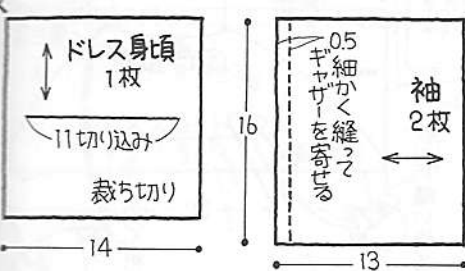 ドレス身頃
1枚
11切り込み
裁ち切り
14
16
0.5
細かく縫って
ギャザーを寄せる
袖
2枚
13